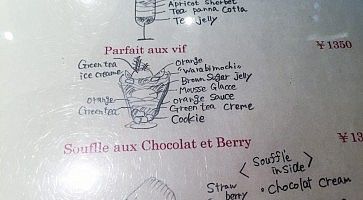 Apricot sherbet
Tea panna cotta
Tea jelly
Parfait aux vif ¥1350
Green tea
ice creame
orange
"Warabimochi"
Brown Sugar jelly
Mousse Glacce
orange Sauce
Green tea creme
Cookie
orange
Green tea
Souffle aux Chocolat et Berry ¥13
< Souffle
inside >
• Chocolat Cream
Straw
berry